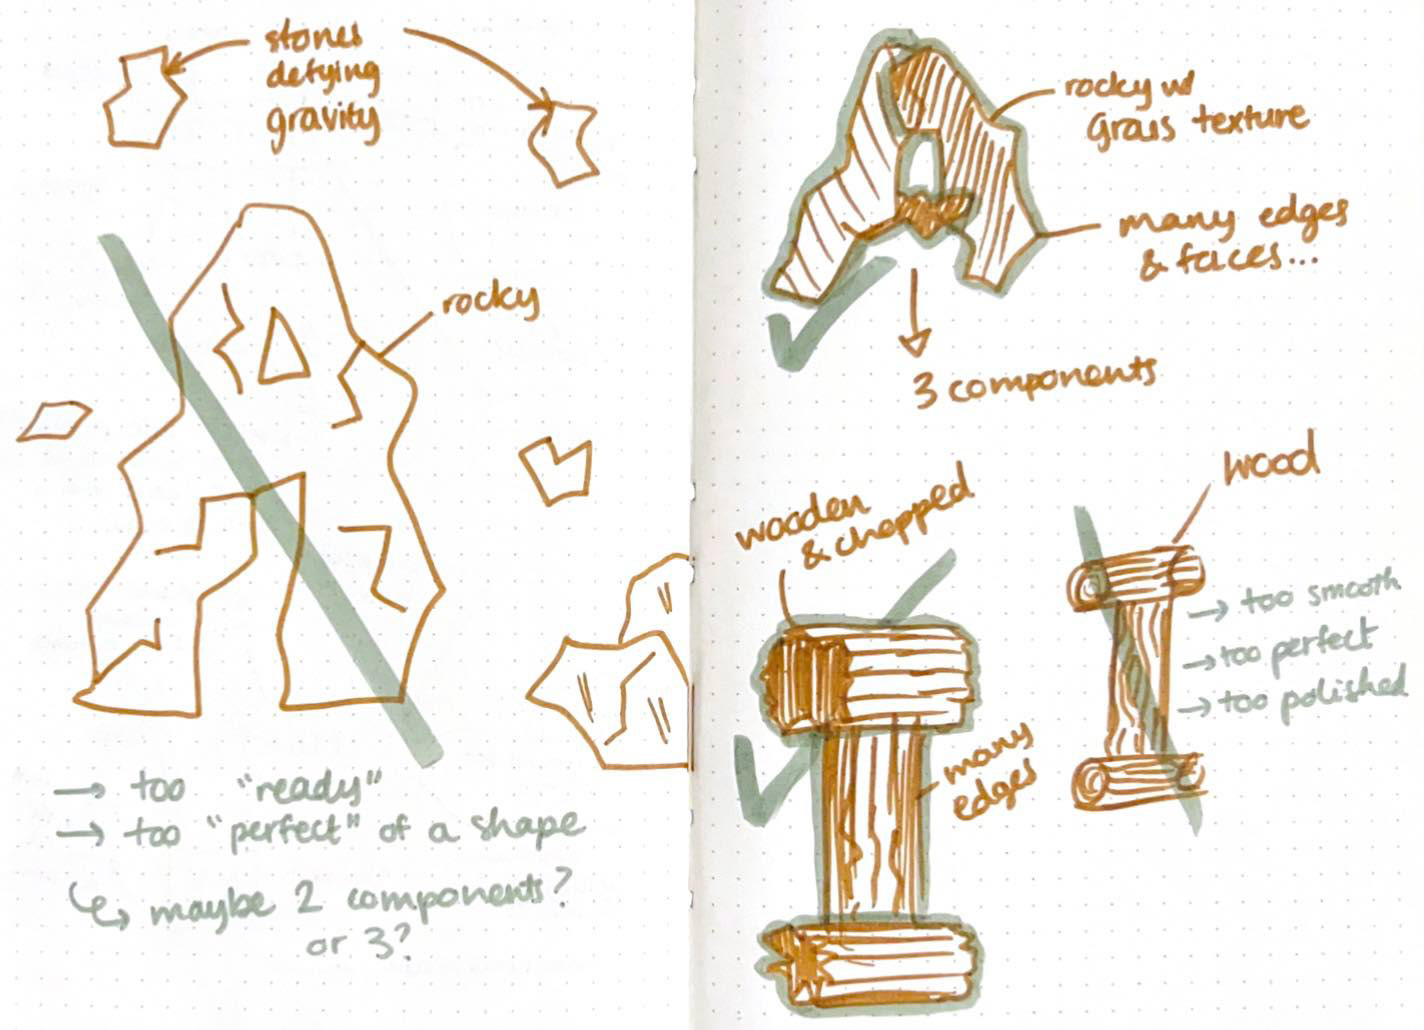 stones
defying
gravity
rocky
→ too "ready"
→ too "perfect" of a shape
↳ maybe 2 components?
or 3?
rocky w/
Grass texture
many edges
& faces...
3 components
wooden
& chopped
many
edges
wood
→ too smooth
→ too perfect
→ too polished